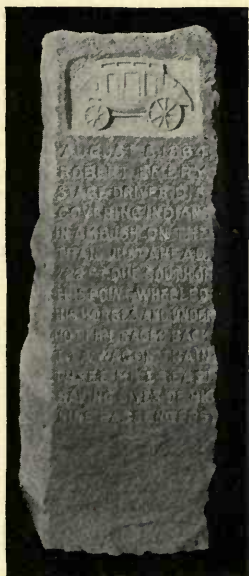 AUGUST 1864
ROBERT EMERY
STAGE DRIVER DIS-
COVERING INDIANS
IN AMBUSH ON THE
TRAIL AHEAD
SOUTH OF
THIS POINT WHEELED
HIS HORSES AND UNDER
BACK
TO A WAGON TRAIN
THREE MILES EAST
SAVING LIVES OF HIS
NINE PASSENGERS